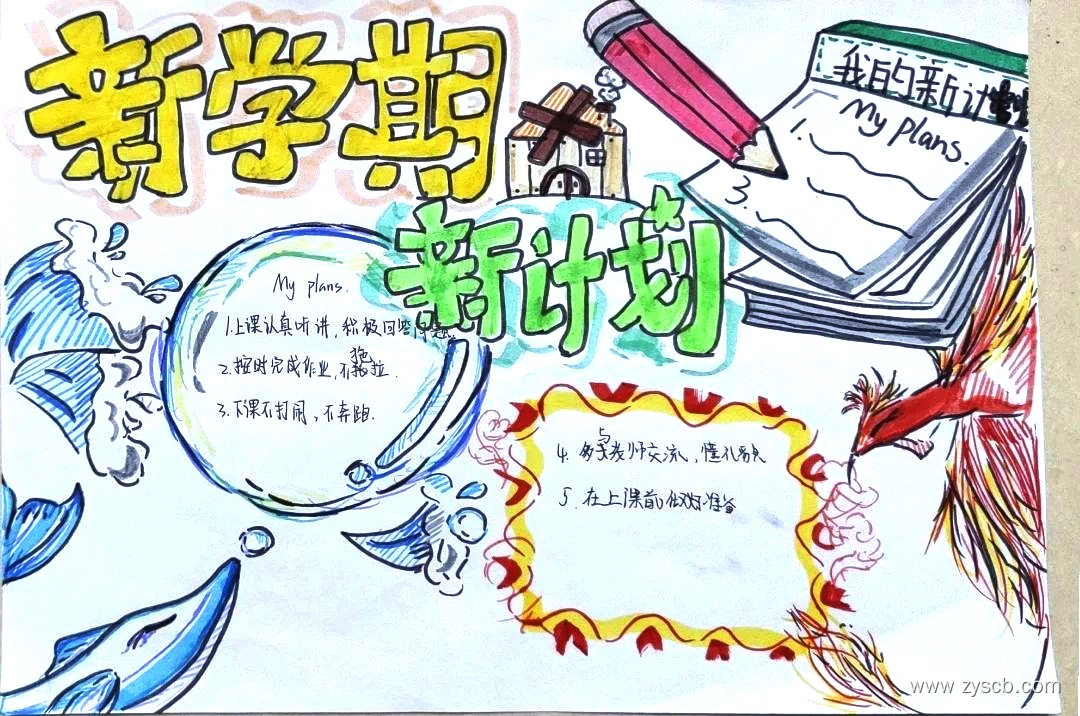 新学期
新计划
我的新计
My plans.
1.
3.
My plans.
1.上课认真听讲,积极回答问题
2.按时完成作业,不拖拉.
3.下课不打闹,不奔跑.
4.多与老师交流,懂礼貌
5.在上课前做好准备
www.zyscb.com